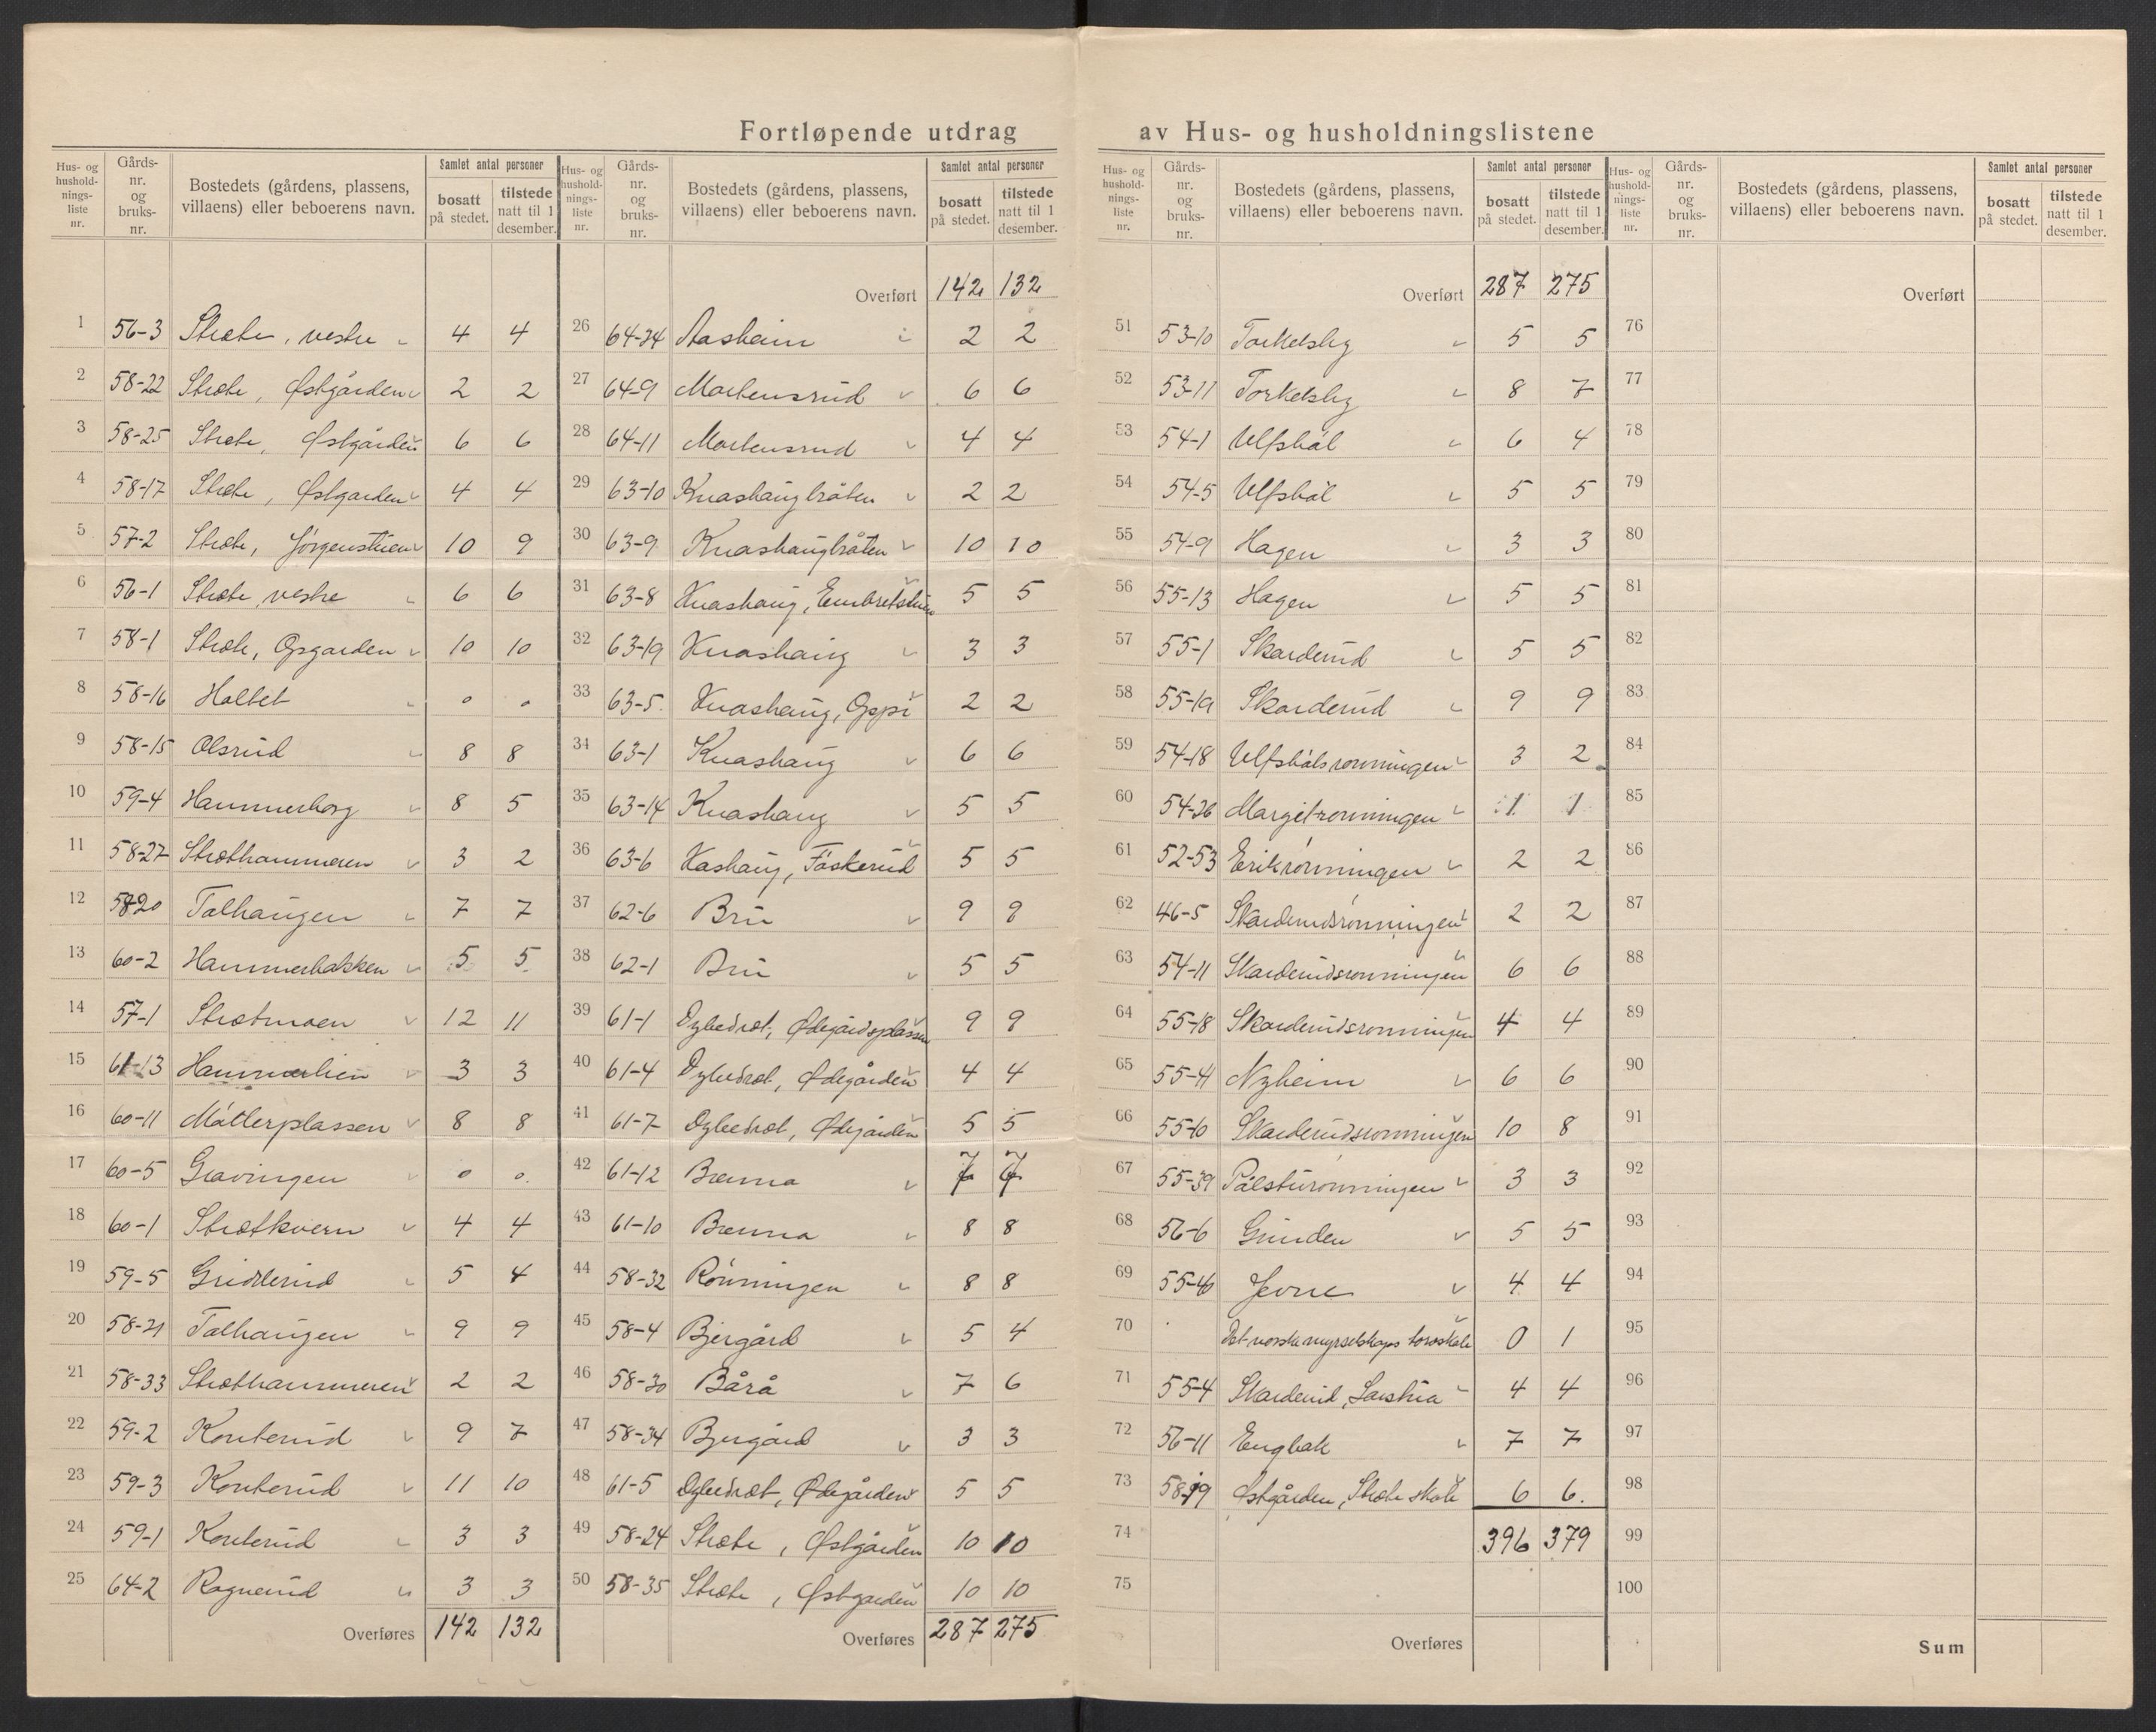 Fortløpende utdrag av Hus- og husholdningslistene
Hus- og husholdnings-liste nr. Gårds-nr. og bruks-nr. Bostedets (gårdens, plassens, villaens) eller beboerens navn. Samlet antal personer bosatt på stedet. tilstede natt til 1 desember.
1 56-3 Stræte, vestre 4 4
2 58-22 Stræte, Østgården 2 2
3 58-25 Stræte, Østgården 6 6
4 58-17 Stræte, Østgarden 4 4
5 57-2 Stræte, Jørgenstuen 10 9
6 56-1 Stræte, vestre 6 6
7 58-1 Stræte, Opgarden 10 10
8 58-16 Holtet 0 0
9 58-15 Olsrud 8 8
10 59-4 Hammerborg 8 5
11 58-27 Stræthammeren 3 2
12 58-20 Talhaugen 7 7
13 60-2 Hammerbakken 5 5
14 57-1 Strætmoen 12 11
15 61-13 Hammerlien 3 3
16 60-11 Måtlerplassen 8 8
17 60-5 Gravingen 0 0
18 60-1 Strætkvern 4 4
19 59-5 Gridlerud 5 4
20 58-21 Talhaugen 9 9
21 58-33 Stræthammeren 2 2
22 59-2 Konterud 9 7
23 59-3 Konterud 11 10
24 59-1 Konterud 3 3
25 64-2 Rognerud 3 3
Overføres 142 132
Hus- og husholdnings-liste nr. Gårds-nr. og bruks-nr. Bostedets (gårdens, plassens, villaens) eller beboerens navn. Samlet antal personer bosatt på stedet. tilstede natt til 1 desember.
Overført 142 132
26 64-34 Aasheim 2 2
27 64-9 Mortensrud 6 6
28 64-11 Mortensrud 4 4
29 63-10 Knashaugbråten 2 2
30 63-9 Knashaugbråten 10 10
31 63-8 Knashaug, Embretstuen 5 5
32 63-19 Knashaug 3 3
33 63-5 Knashaug, Oppi 2 2
34 63-1 Knashaug 6 6
35 63-14 Knashaug 5 5
36 63-6 Kashaug, Fåskerud 5 5
37 62-6 Bru 9 9
38 62-1 Bru 5 5
39 61-1 Dybedræt, Ødegårdsplassen 9 9
40 61-4 Dybedræt, Ødegården 4 4
41 61-7 Dybedræt, Ødegården 5 5
42 61-12 Brenna 7 7
43 61-10 Brenna 8 8
44 58-32 Rønningen 8 8
45 58-4 Bjergård 5 4
46 58-30 Bårå 7 6
47 58-34 Bjergård 3 3
48 61-5 Dybedræt, Ødegården 5 5
49 58-24 Stræte, Østgården 10 10
50 58-35 Stræte, Østgarden 10 10
Overføres 287 275
Hus- og husholdnings-liste nr. Gårds-nr. og bruks-nr. Bostedets (gårdens, plassens, villaens) eller beboerens navn. Samlet antal personer bosatt på stedet. tilstede natt til 1 desember.
Overført 287 275
51 53-10 Torkelsby 5 5
52 53-11 Torkelsby 8 7
53 54-1 Ulfshål 6 4
54 54-5 Ulfshål 5 5
55 54-9 Hagen 3 3
56 55-13 Hagen 5 5
57 55-1 Skarderud 5 5
58 55-19 Skarderud 9 9
59 54-18 Ulfshålsrønningen 3 2
60 54-26 Margitrønningen 1 1
61 52-53 Erikrønningen 2 2
62 46-5 Skarderudsrønningen 2 2
63 54-11 Skarderudsrønningen 6 6
64 55-18 Skarderudsrønningen 4 4
65 55-41 Nyheim 6 6
66 55-10 Skarderudsrønningen 10 8
67 55-39 Pålsturønningen 3 3
68 56-6 Grinden 5 5
69 55-40 Jevne 4 4
70 Det norske myrselskaps torvskole 0 1
71 55-4 Skarderud, Larstua 4 4
72 56-11 Engbak 7 7
73 58-19 Østgården, Stræte skole 6 6
74 396 379
75
Overføres
Hus- og husholdnings-liste nr. Gårds-nr. og bruks-nr. Bostedets (gårdens, plassens, villaens) eller beboerens navn. Samlet antal personer bosatt på stedet. tilstede natt til 1 desember.
Overført
76
77
78
79
80
81
82
83
84
85
86
87
88
89
90
91
92
93
94
95
96
97
98
99
100
Sum